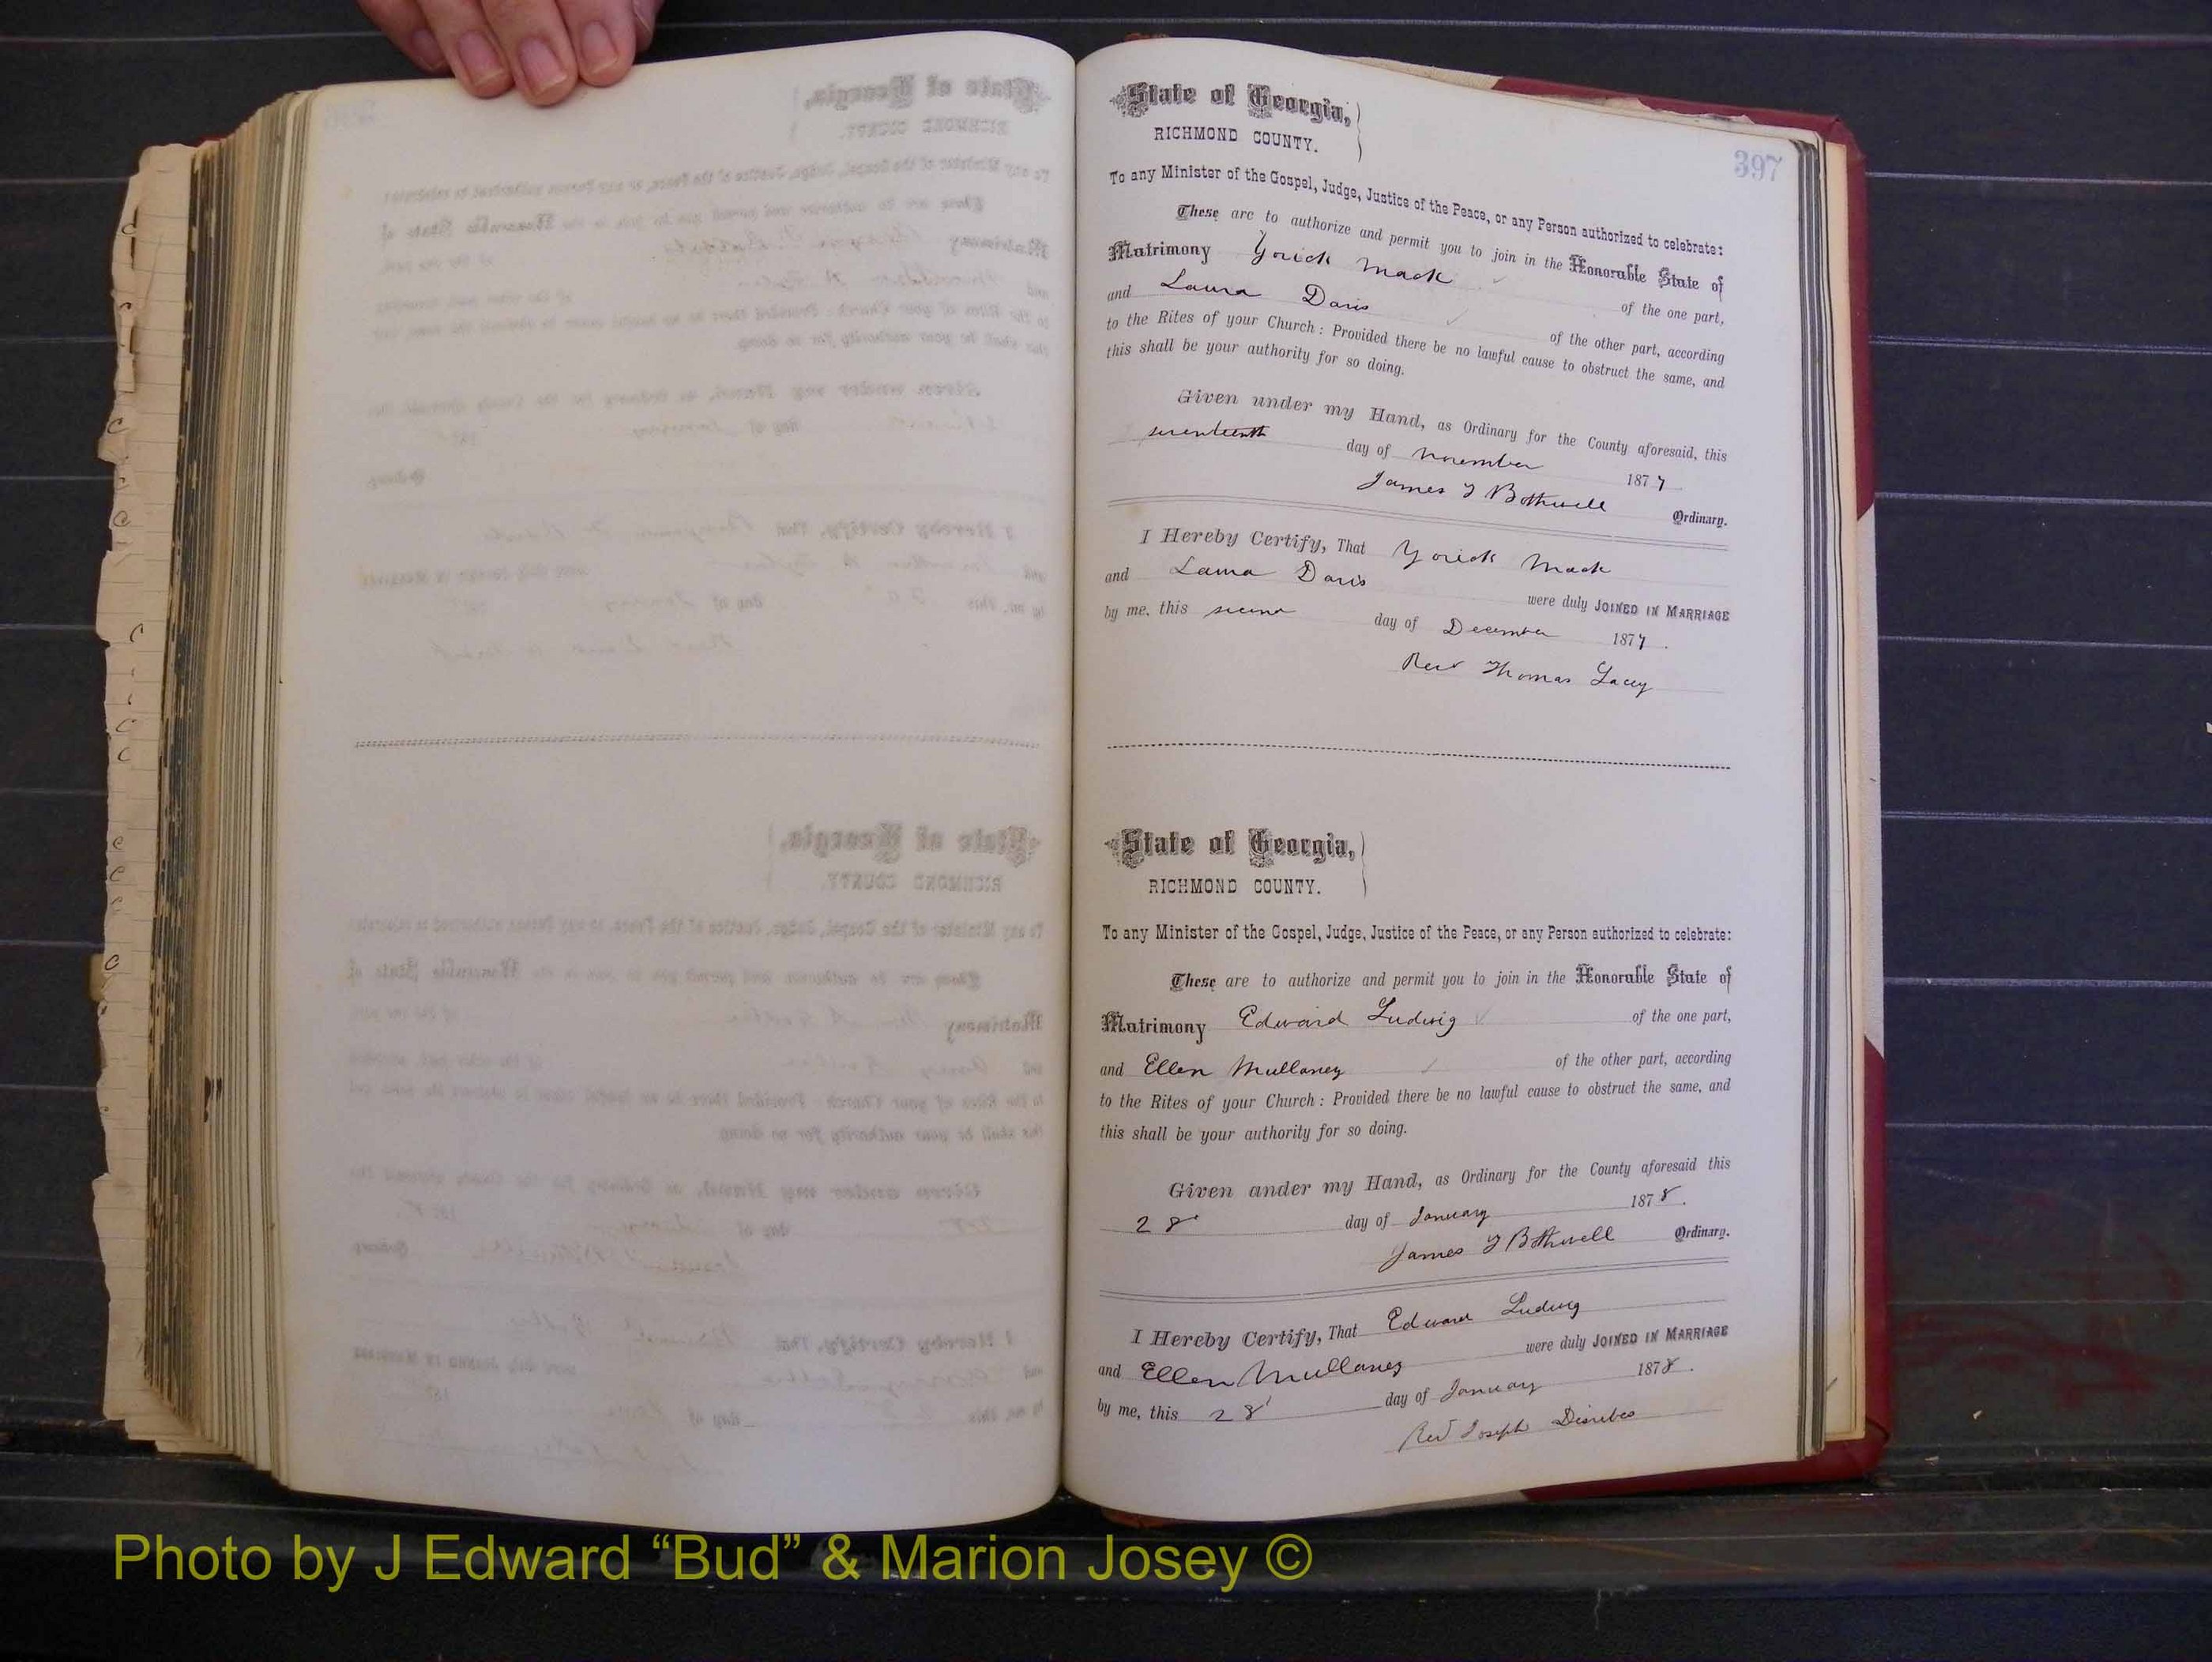 397
State of Georgia,
RICHMOND COUNTY.
To any Minister of the Gospel, Judge, Justice of the Peace, or any Person authorized to celebrate:
These are to authorize and permit you to join in the Honorable State of
Matrimony Yorick Mack of the one part,
and Laura Davis of the other part, according
to the Rites of your Church: Provided there be no lawful cause to obstruct the same, and
this shall be your authority for so doing.
Given under my Hand, as Ordinary for the County aforesaid, this
seventeenth day of November 1877
James T Bothwell Ordinary.
I Hereby Certify, That Yorick Mack
and Laura Davis were duly JOINED IN MARRIAGE
by me, this second day of December 1877.
Rev Thomas Lacey
State of Georgia,
RICHMOND COUNTY.
To any Minister of the Gospel, Judge, Justice of the Peace, or any Person authorized to celebrate:
These are to authorize and permit you to join in the Honorable State of
Matrimony Edward Ludwig of the one part,
and Ellen Mullaney of the other part, according
to the Rites of your Church: Provided there be no lawful cause to obstruct the same, and
this shall be your authority for so doing.
Given under my Hand, as Ordinary for the County aforesaid this
28 day of January 1878.
James T Bothwell Ordinary.
I Hereby Certify, That Edward Ludwig
and Ellen Mullaney were duly JOINED IN MARRIAGE
by me, this 28 day of January 1878.
Rev Joseph
Photo by J Edward “Bud” & Marion Josey ©